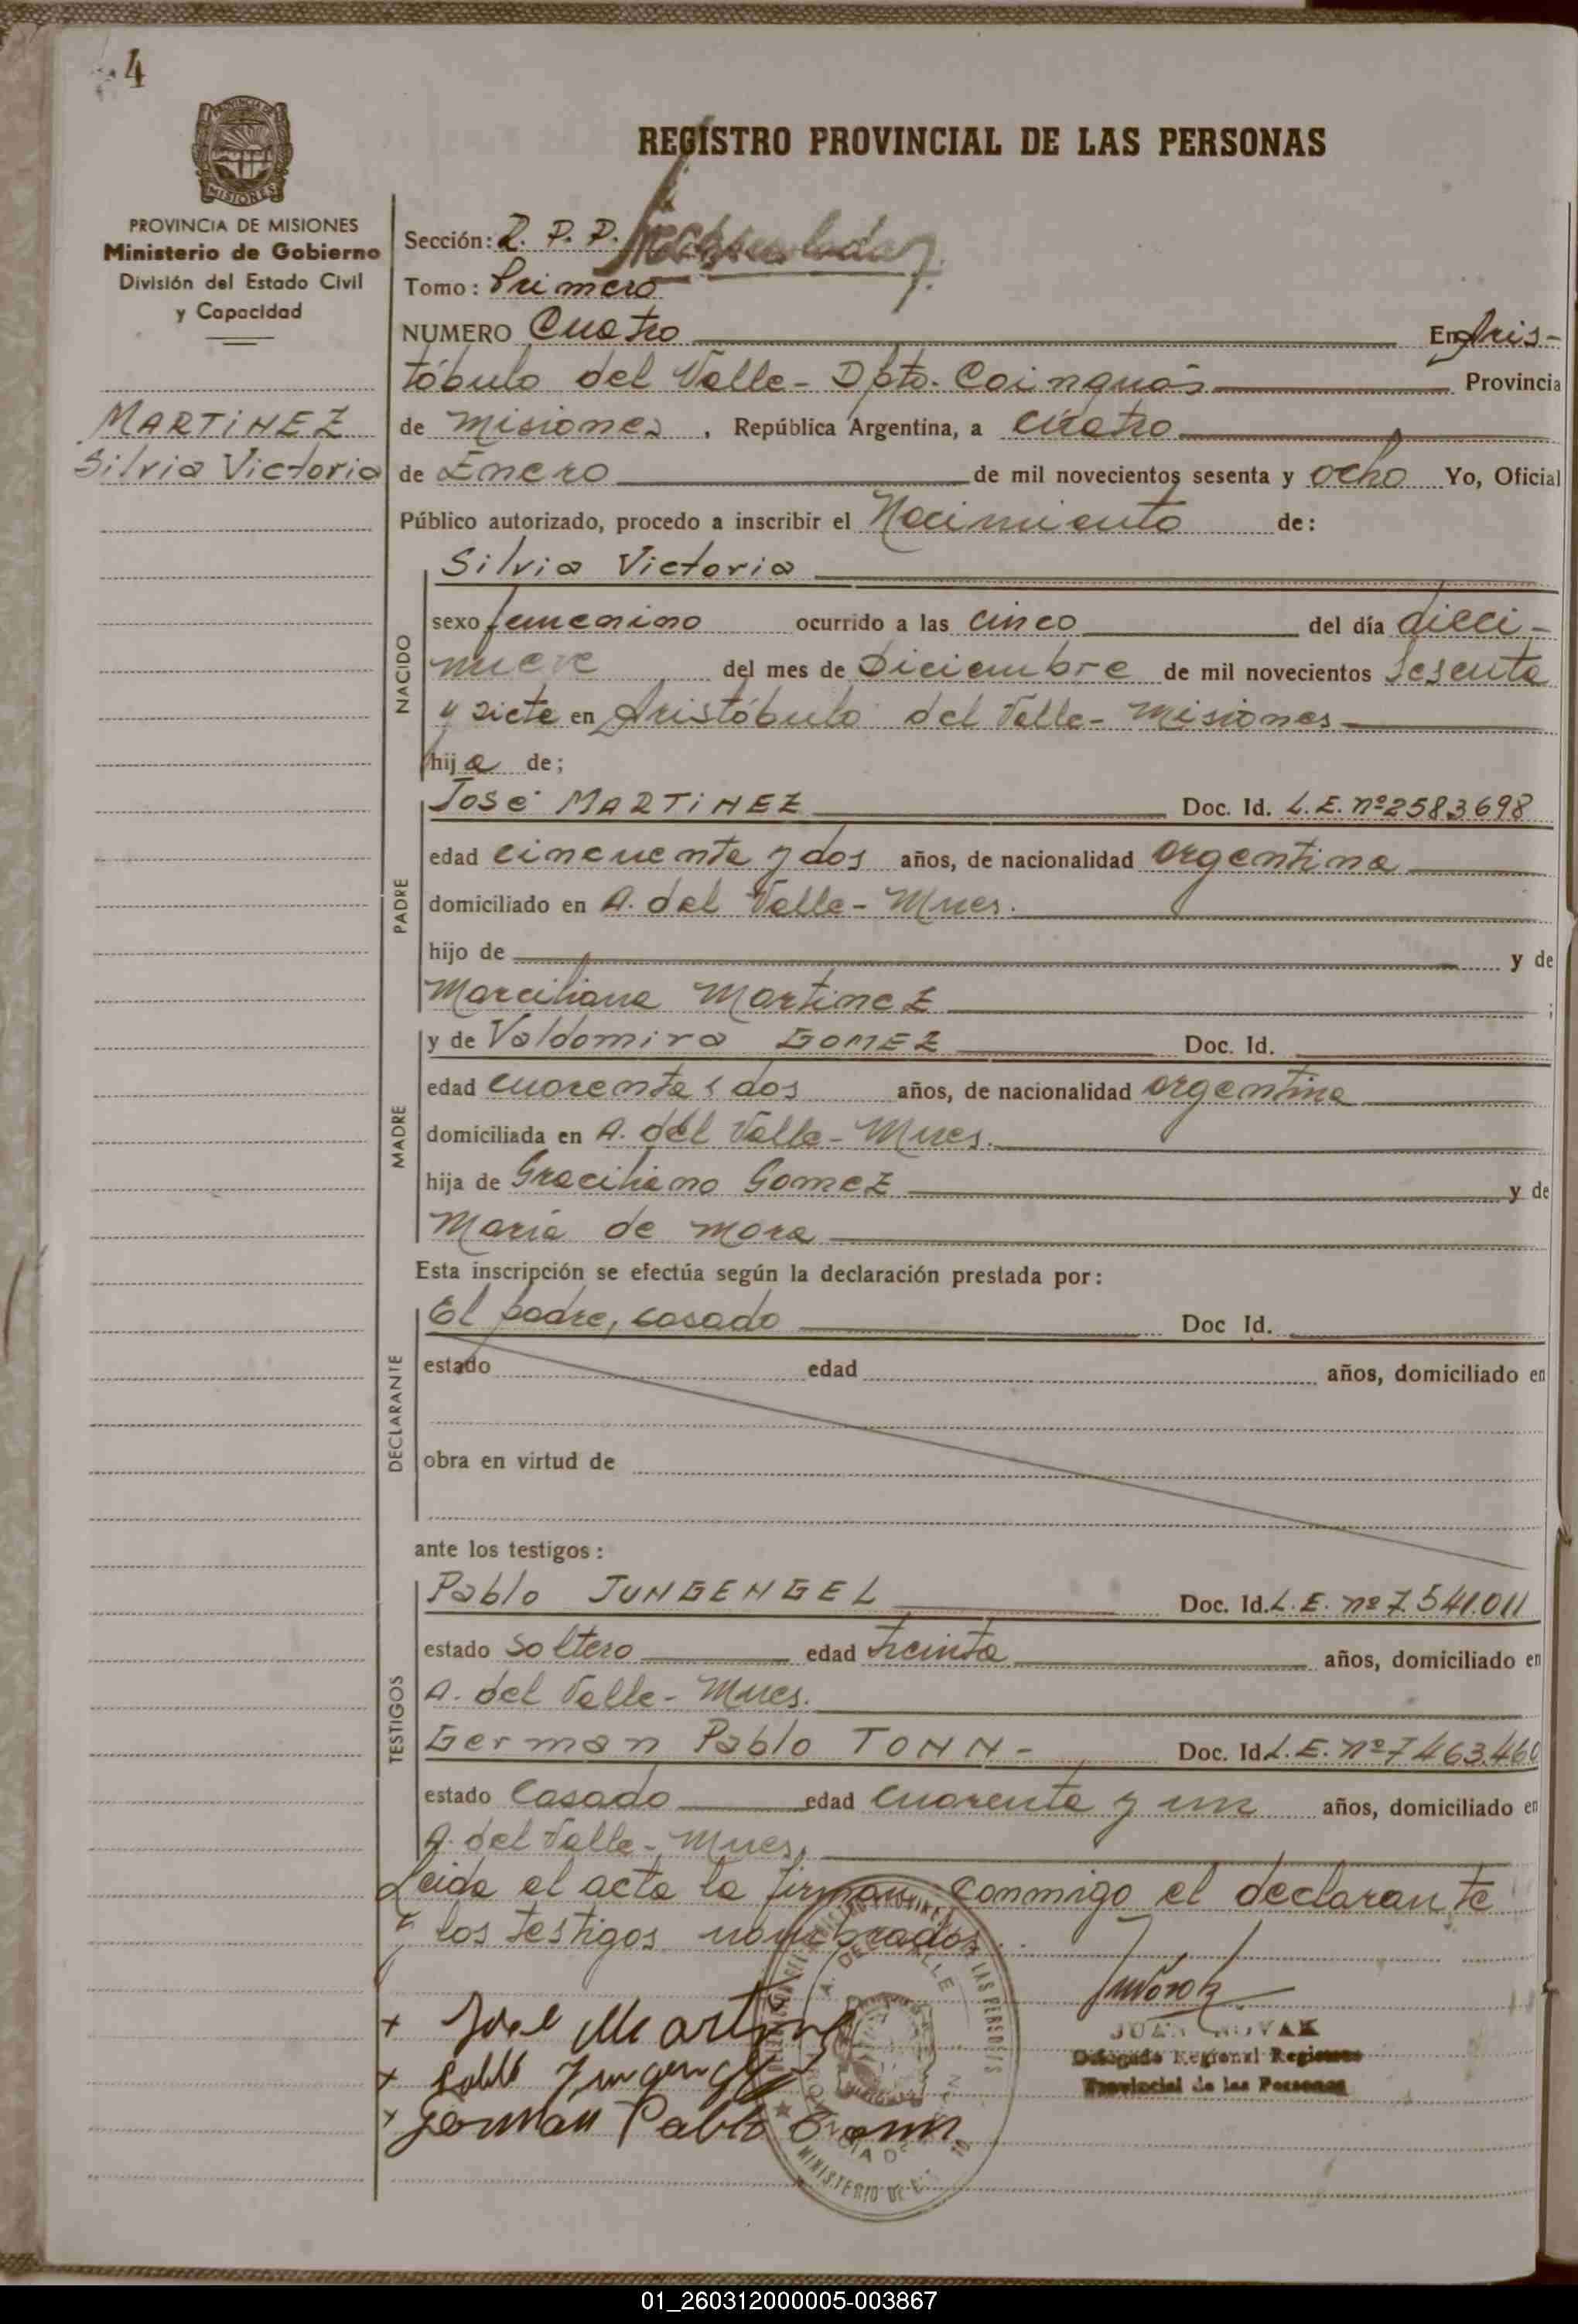 4
MISIONES
PROVINCIA DE MISIONES
Ministerio de Gobierno
División del Estado Civil
y Capacidad
MARTINEZ
Silvia Victoria
REGISTRO PROVINCIAL DE LAS PERSONAS
Sección: R. P. P.
Tomo: Primero
NUMERO Cuatro En Aris-
tóbulo del Valle- Dpto. Cainguás Provincia
de Misiones, República Argentina, a cuatro
de Enero de mil novecientos sesenta y ocho Yo, Oficial
Público autorizado, procedo a inscribir el Nacimiento de:
NACIDO
Silvia Victoria
sexo femenino ocurrido a las cinco del día dieci-
nueve del mes de Diciembre de mil novecientos sesenta
y siete en Aristóbulo del Valle- Misiones
hija de;
PADRE
José MARTINEZ Doc. Id. L.E. nº 2583698
edad cincuenta y dos años, de nacionalidad argentina
domiciliado en A. del Valle- Mnes.
hijo de y de
Marciliana Martinez ;
MADRE
y de Valdomira GOMEZ Doc. Id.
edad cuarenta y dos años, de nacionalidad argentina
domiciliada en A. del Valle- Mnes.
hija de Graciliano Gomez y de
María de Mora
Esta inscripción se efectúa según la declaración prestada por:
DECLARANTE
El padre, casado Doc Id.
estado edad años, domiciliado en
obra en virtud de
ante los testigos:
TESTIGOS
Pablo JUNGENGEL Doc. Id. L.E. nº 7.541.011
estado soltero edad treinta años, domiciliado en
A. del Valle- Mnes.
German Pablo TONN- Doc. Id. L.E. nº 7463.460
estado Casado edad cuarenta y un años, domiciliado en
A. del Valle- Mnes.
Leida el acta la firman conmigo el declarante
y los testigos nombrados.
+ José Martinez
+ Pablo Jungengel
+ German Pablo Tonn
A. DEL VALLE
LAS PERSONAS
MINISTERIO DE
JUAN NOVAK
Delegado Regional Registro
Provincial de las Personas
01_260312000005-003867